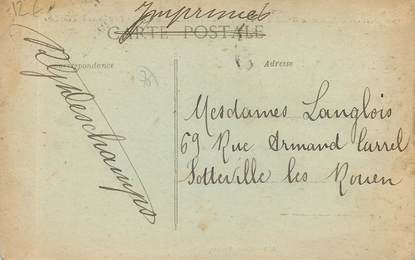 12 €
Imprimés
CARTE POSTALE
Correspondance
Adresse
Mesdames Langlois
69 Rue Armand Carrel
Sotteville les Rouen